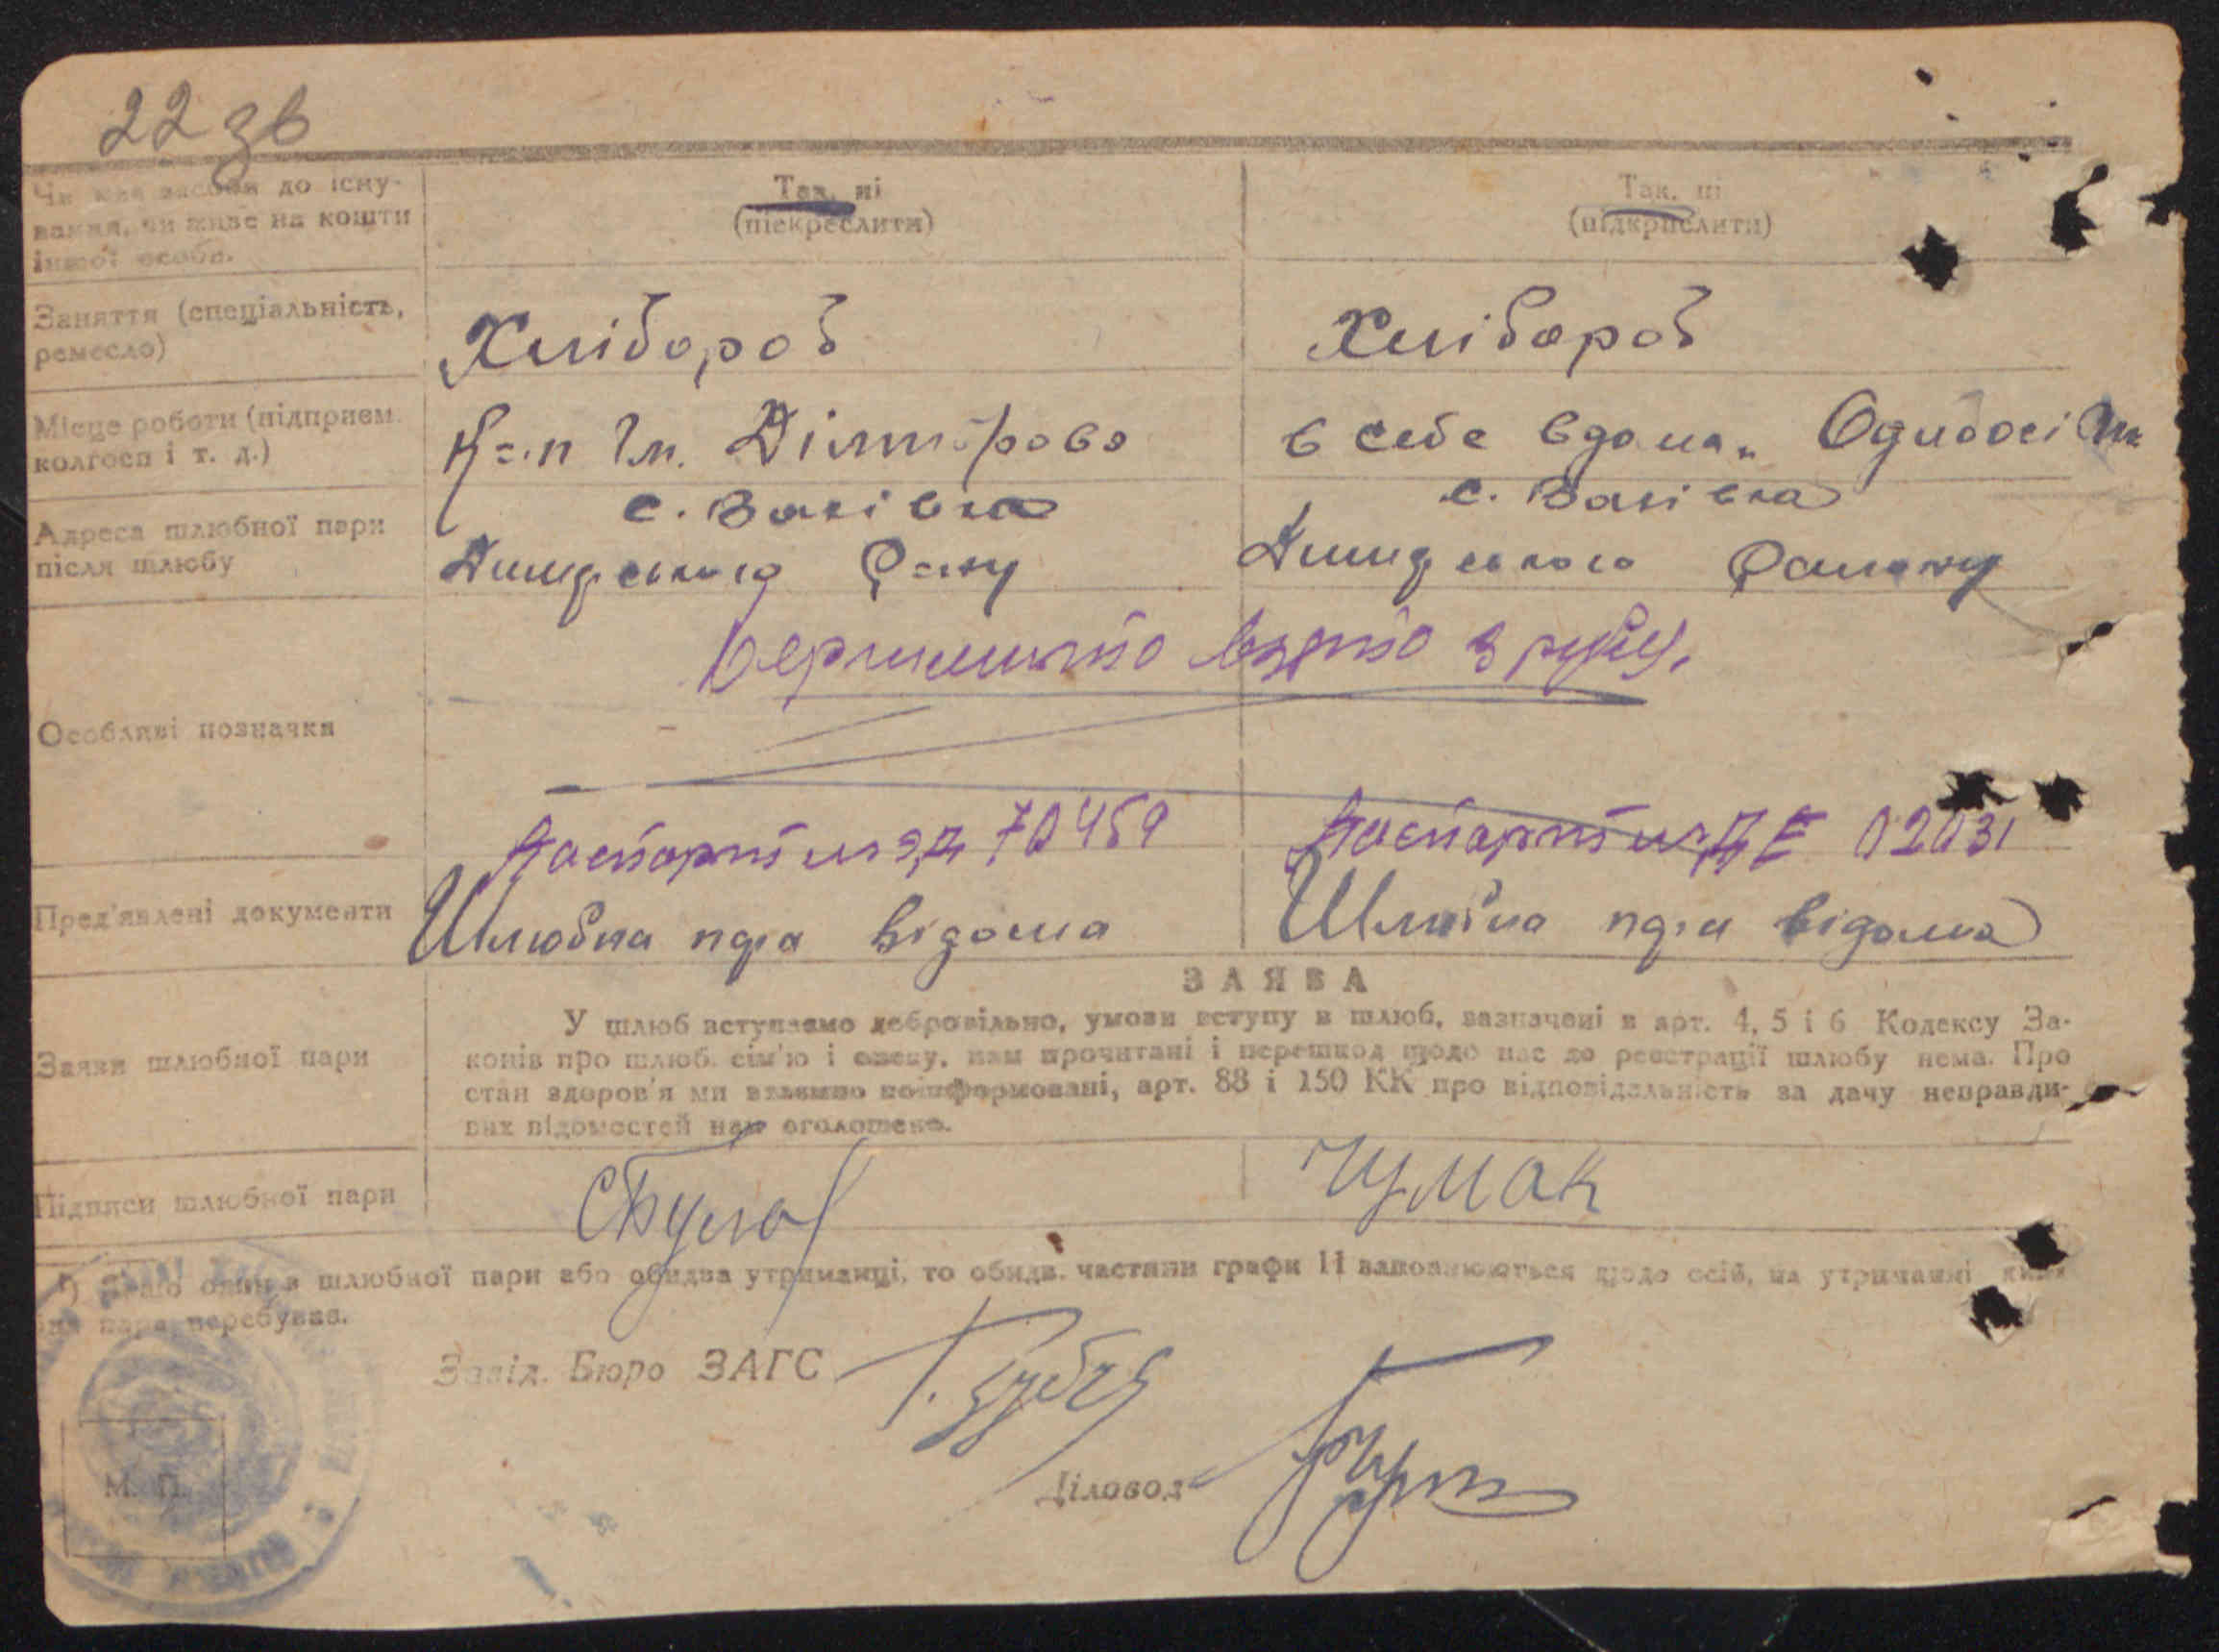 22 зв
Чи має засоби до існу-
вання, чи живе на кошти
іншої особи.
Так, ні
(підкреслити)
Так, ні
(підкрислити)
Заняття (спеціальність,
ремесло)
Хлібороб
Хлібороб
Місце роботи (підприєм.
колгосп і т. д.)
К-п Ім. Дімитрова
в себе вдома
Адреса шлюбної пари
після шлюбу
с. Валівка
с. Валівка
Димерського
Димерського Району
Особливі позначки
взято 3 рубл.
Пред'явлені документи
Паспорт 70459
Паспорт 02031
Шлюбна пара відома
Шлюбна пара відома
Заяви шлюбної пари
ЗАЯВА
У шлюб вступаємо добровільно, умови вступу в шлюб, зазначені в арт. 4, 5 і 6 Кодексу За-
конів про шлюб, сім'ю і опеку, нам прочитані і перешкод щодо нас до реєстрації шлюбу нема. Про
стан здоров'я ми взаємно поінформовані, арт. 88 і 150 КК про відповідальність за дачу неправди-
вих відомостей нам оголошено.
Підписи шлюбної пари
Чумак
¹) Якщо один з шлюбної пари або обидва утриманці, то обидв. частини графи 11 заповнюються щодо осіб, на утриманні яких
пара перебуває.
Завід. Бюро ЗАГС
Діловод
М. П.